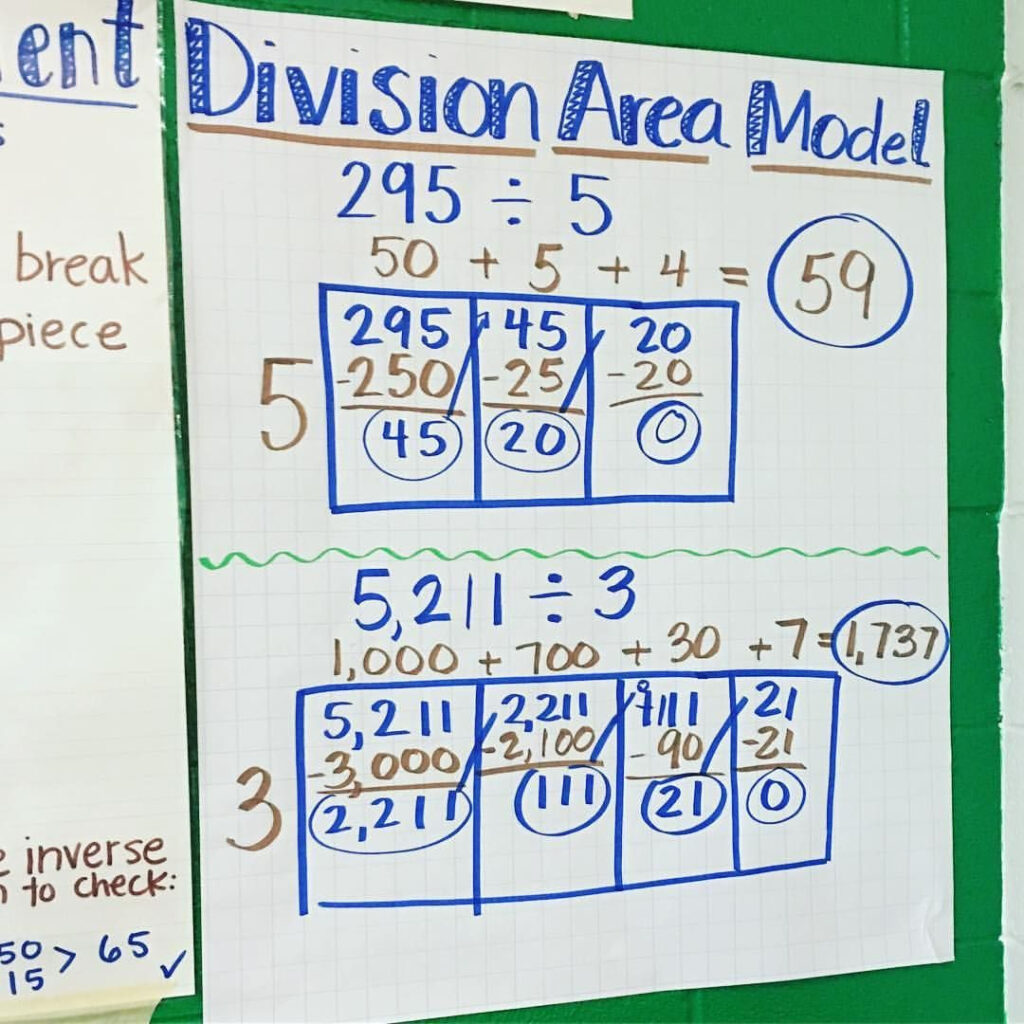 ent
s
break
piece
e inverse
n to check:
50 > 65 ✓
15
Division Area Model
295 ÷ 5
50 + 5 + 4 = 59
295 45 20
5 -250 -25 -20
45 20 0
5,211 ÷ 3
1,000 + 700 + 30 + 7 = 1,737
5,211 2,211 111 21
3 -3,000 -2,100 -90 -21
2,211 111 21 0